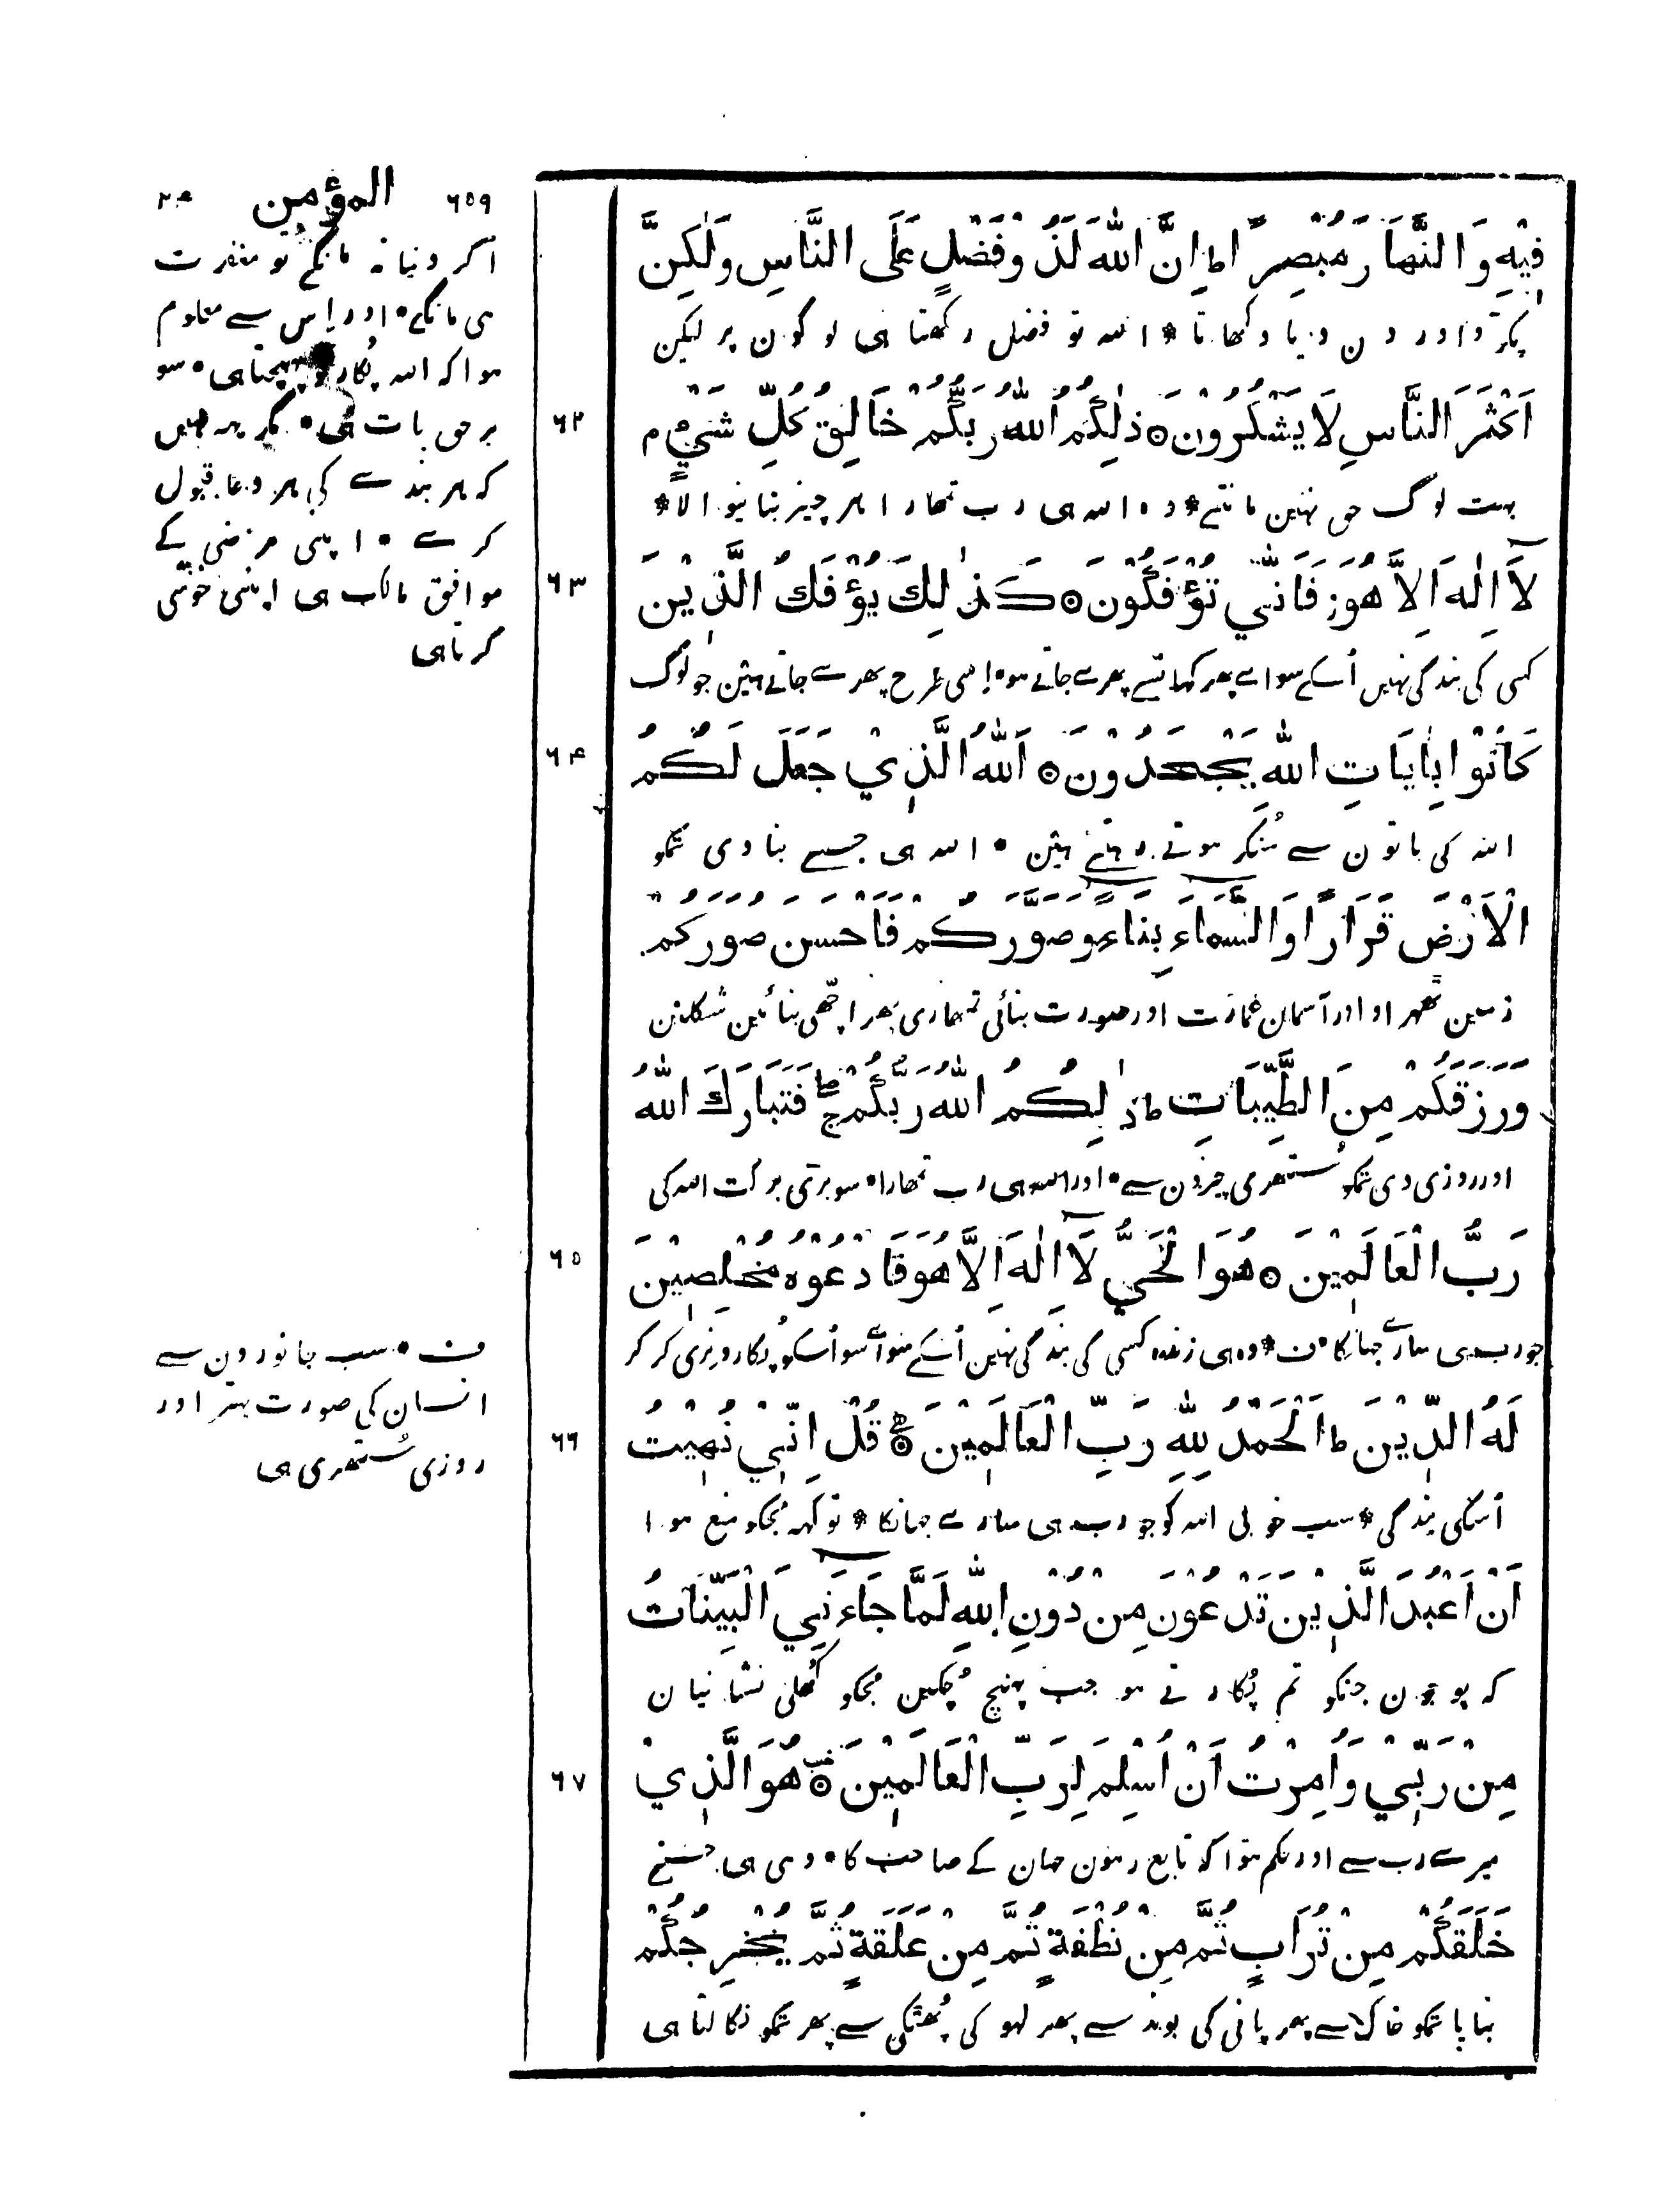 ٦٥٩ المؤمن ٢٤
فِيْهِ وَالنَّهَارَ مُبْصِرًا ط اِنَّ اللّٰهَ لَذُوْ فَضْلٍ عَلَى النَّاسِ وَلٰكِنَّ
پکڑو اور دن دیا دکھاتا * اللہ تو فضل رکھتا ہی لوگون پر لیکن
٦٢ اَكْثَرَ النَّاسِ لَا يَشْكُرُوْنَ ۞ ذٰلِكُمُ اللّٰهُ رَبُّكُمْ خَالِقُ كُلِّ شَيْءٍ م
بہت لوگ حق نہین مانتے * وہ اللہ ہی رب تمھارا ہر چیز بنانیوالا *
٦٣ لَآ اِلٰهَ اِلَّا هُوَ ز فَاَنّٰي تُؤْفَكُوْنَ ۞ كَذٰلِكَ يُؤْفَكُ الَّذِيْنَ
کسی کی بندگی نہین اُسکے سواے پھر کہانسے پھرے جاتے ہو * اِسی طرح پھرے جاتے ہین جو لوگ
٦٤ كَانُوْا بِاٰيَاتِ اللّٰهِ يَجْحَدُوْنَ ۞ اَللّٰهُ الَّذِيْ جَعَلَ لَكُمُ
اللہ کی باتون سے مُنکر ہوتے رہتے ہین * اللہ ہی جسنے بنا دی تمکو
الْاَرْضَ قَرَارًا وَّالسَّمَآءَ بِنَآءً وَّصَوَّرَكُمْ فَاَحْسَنَ صُوَرَكُمْ
زمین ٹھہراو اور آسمان عمارت اور صورت بنائی تمھاری پھر اچھّی بنائین شکلین
وَرَزَقَكُمْ مِنَ الطَّيِّبَاتِ ط ذٰلِكُمُ اللّٰهُ رَبُّكُمْ فَتَبَارَكَ اللّٰهُ
اور روزی دی تمکو سُتھری چیزون سے * اور اللہ ہی رب تمھارا * سو بڑی برکت اللہ کی
٦٥ رَبُّ الْعَالَمِيْنَ ۞ هُوَ الْحَيُّ لَآ اِلٰهَ اِلَّا هُوَ فَادْعُوْهُ مُخْلِصِيْنَ
جو رب ہی سارے جہانکا * ف * وہ ہی زندہ کسی کی بندگی نہین اُسکے سواے سو اُسکو پُکارو نری کر کر
٦٦ لَهُ الدِّيْنَ ط اَلْحَمْدُ لِلّٰهِ رَبِّ الْعَالَمِيْنَ ۞ قُلْ اِنِّيْ نُهِيْتُ
اُسکی بندگی * سب خوبی اللہ کو جو رب ہی سارے جہانکا * تو کہہ مُجکو منع ہوا
اَنْ اَعْبُدَ الَّذِيْنَ تَدْعُوْنَ مِنْ دُوْنِ اللّٰهِ لَمَّا جَآءَنِيَ الْبَيِّنَاتُ
کہ پوجون جنکو تم پُکارتے ہو جب پہنچ چُکین مُجکو کُھلی نشانیان
٦٧ مِنْ رَبِّيْ وَاُمِرْتُ اَنْ اُسْلِمَ لِرَبِّ الْعَالَمِيْنَ ۞ هُوَ الَّذِيْ
میرے رب سے اور حکم ہوا کہ تابع رہون جہان کے صاحب کا * وہی ہی جسنے
خَلَقَكُمْ مِنْ تُرَابٍ ثُمَّ مِنْ نُطْفَةٍ ثُمَّ مِنْ عَلَقَةٍ ثُمَّ يُخْرِجُكُمْ
بنایا تمکو خاک سے پھر پانی کی بوند سے پھر لہو کی پُھٹکی سے پھر تمکو نکالتا ہی
اگر دنیا نہ مانگے تو مغفرت
ہی مانگے * اور اِس سے معلوم
ہوا کہ اللہ پُکار کو پہنچتا ہی * سو
برحق بات ہی * مگر یہہ نہین
کہ ہر بندے کی ہر دعا قبول
کرے * اپنی مرضی کے
موافق مالک ہی اپنی خوشی
کرتا ہی
ف * سب جانورون سے
انسان کی صورت بہتر اور
روزی سُتھری ہی